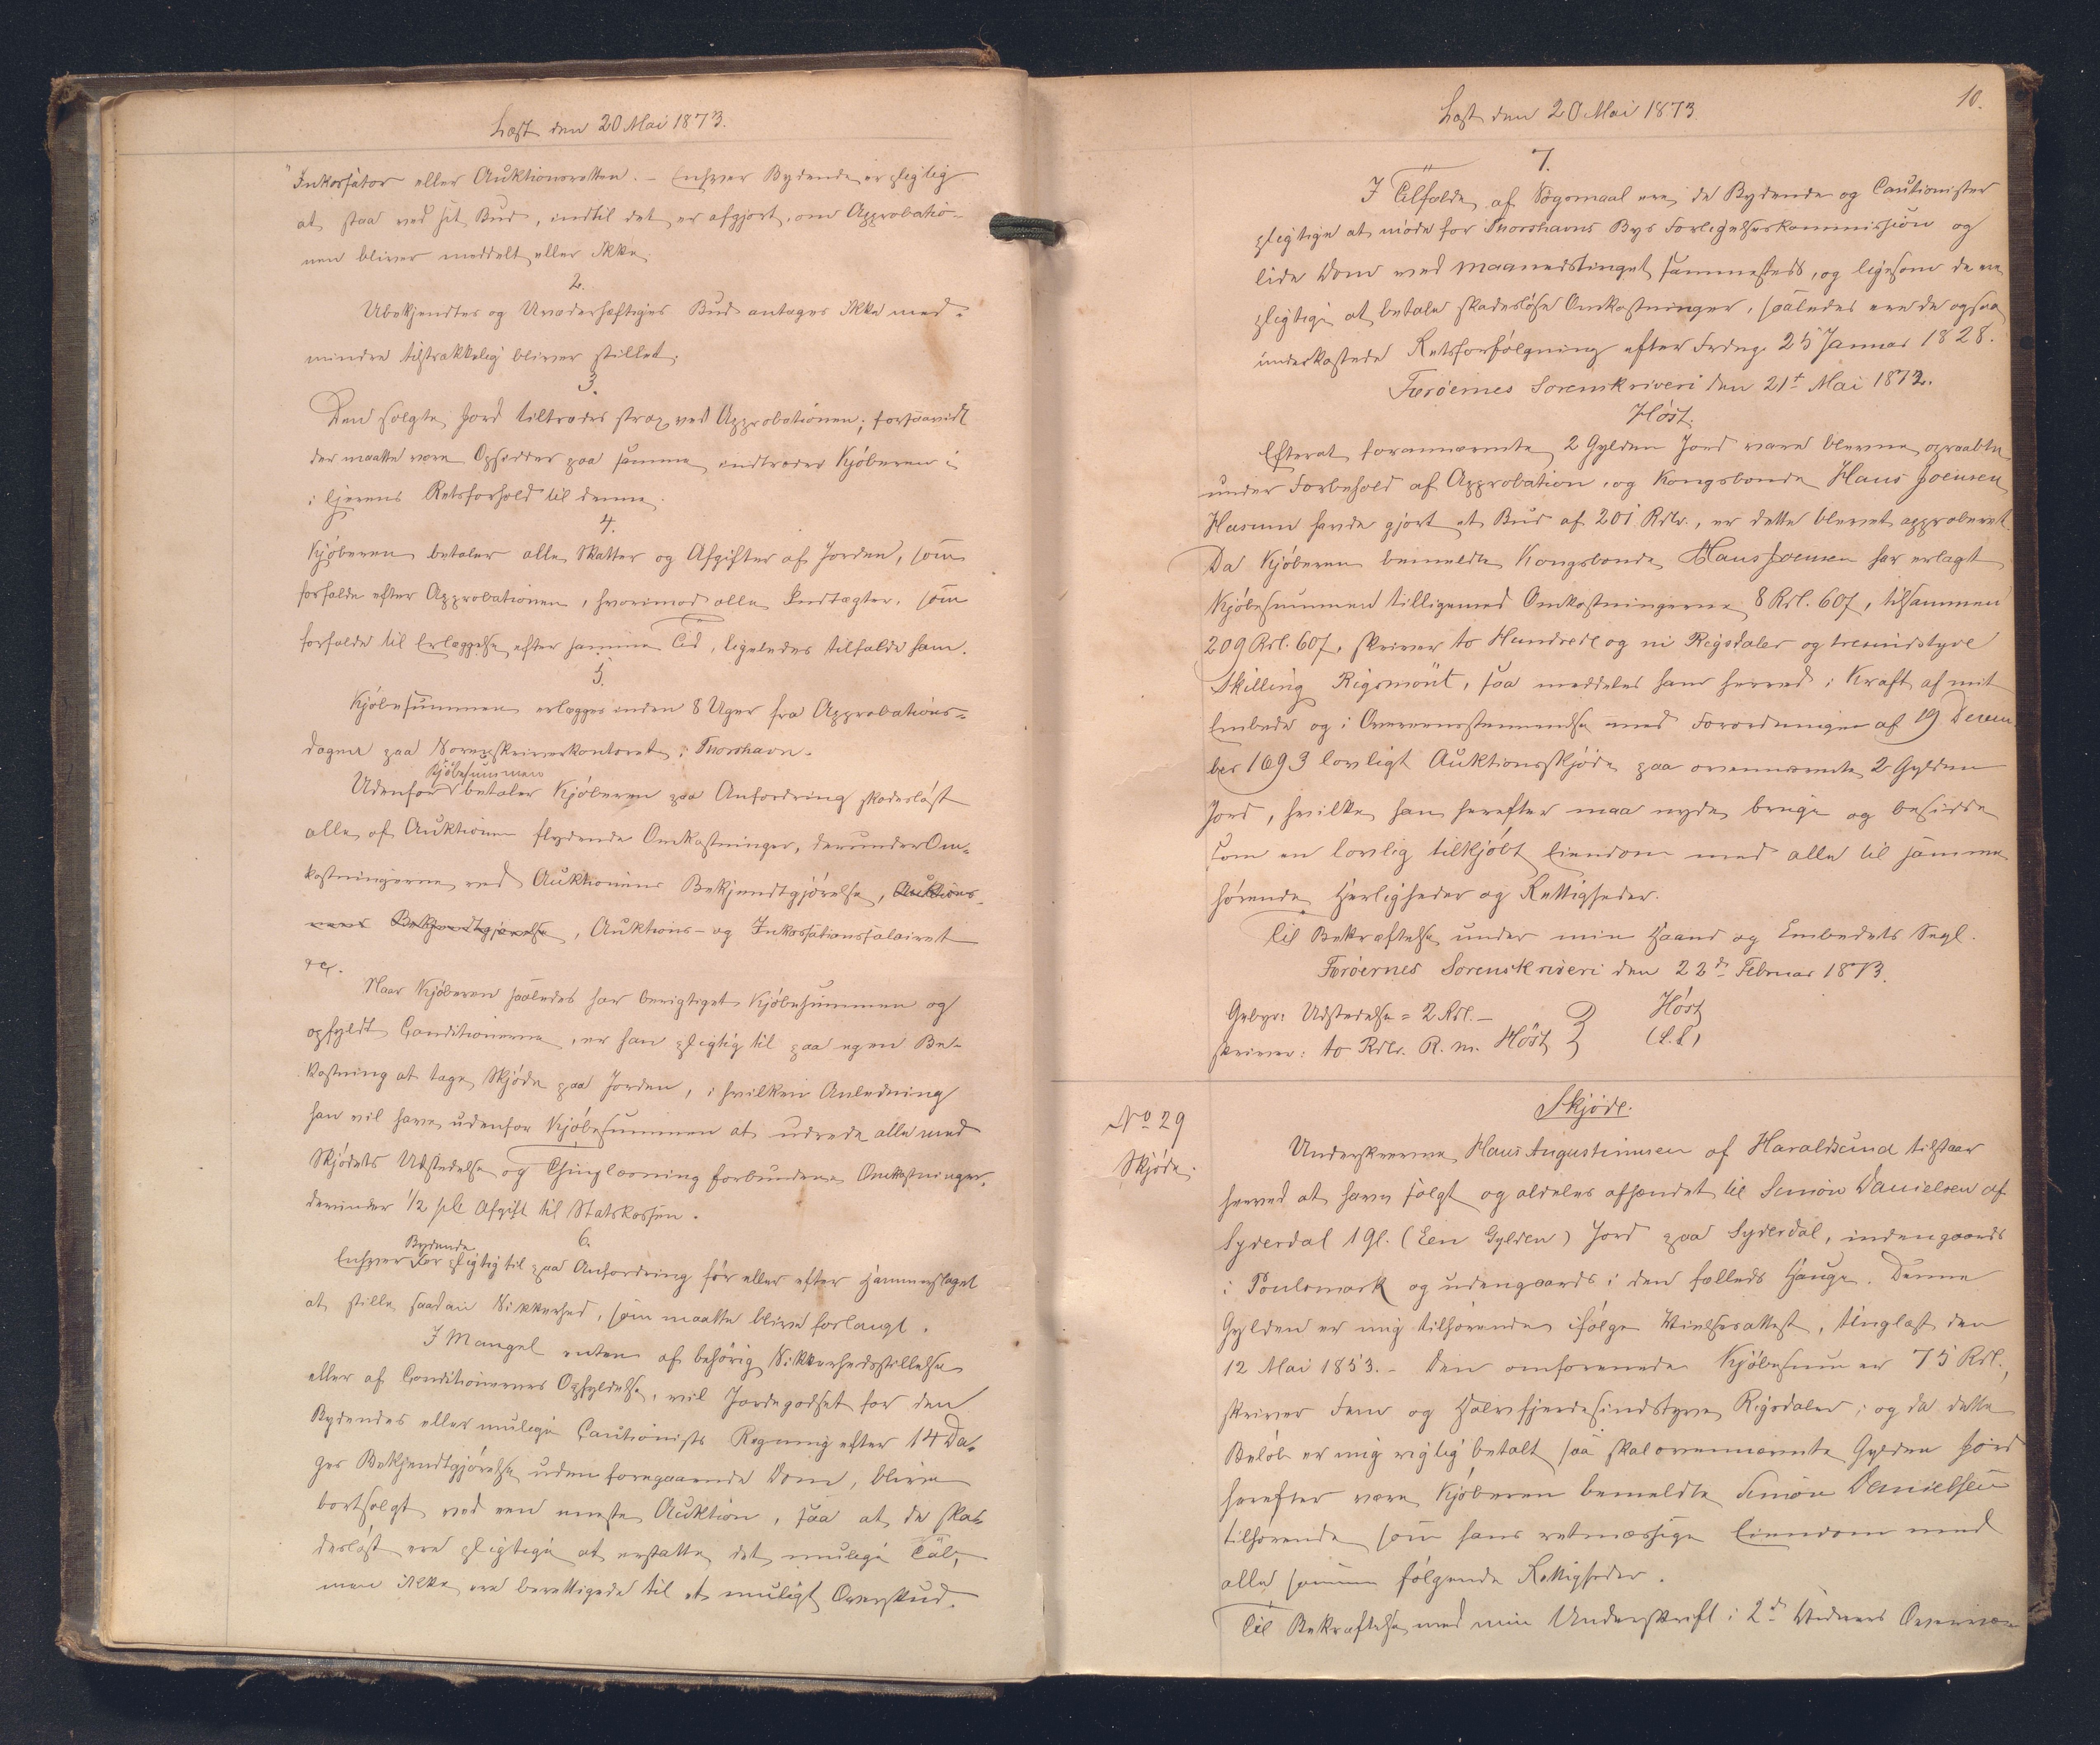 Læst den 20 Mai 1873.
Inkassator eller Auktionsretten. – Enhver Bydende er pligtig
at staa ved sit Bud, indtil det er afgjort, om Approbatio-
nen bliver meddelt eller ikke.
2.
Ubekjendtes og Uvederhæftiges Bud antages ikke med-
mindre tilstrækkelig bliver stillet.
3.
Den solgte Jord tiltrædes strax ved Approbationen; forsaavidt
der maatte være Opsidder paa samme indtræder Kjøberen i
i Ejerens Retsforhold til denne.
4.
Kjøberen betaler alle Skatter og Afgifter af Jorden, som
forfalde efter Approbationen, hvorimod alle Indtægter, som
forfalde til Erlæggelse efter samme Tid, ligeledes tilfalde ham.
5.
Kjøbesummen erlægges inden 8 Uger fra Approbations-
dagen paa Sorenskriverkontoret i Thorshavn.
Kjøbesummen
Udenfor betaler Kjøberen paa Anfordring skadesløst
alle af Auktionen flydende Omkostninger, derunder Om-
kostningerne ved Auktionens Bekjendtgjørelse, Auktions-
nens Bekjendtgjørelse, Auktions- og Inkassationssalairet
etc.
Naar Kjøberen saaledes har berigtiget Kjøbesummen og
opfyldt Conditionerne, er han pligtig til paa egen Be-
kostning at tage Skjøde paa Jorden, i hvilken Anledning
han vil have udenfor Kjøbesummen at udrede alle med
Skjødets Udstedelse og Thinglæsning forbundne Omkostninger,
derunder 1/2 pCt Afgift til Statskassen.
6.
Bydende
Enhver er pligtig til paa Anfordring før eller efter Hammerslaget
at stille saadan Sikkerhed, som maatte blive forlangt.
I Mangel enten af behørig Sikkerhedsstillelse
eller af Conditionernes Opfyldelse, vil Jordegodset for den
Bydendes eller mulige Cautionists Regning efter 14 Da-
ges Bekjendtgjørelse uden foregaaende Dom, blive
bortsolgt ved een eneste Auktion, saa at de ska-
desløst ere pligtige at erstatte det mulige Tab,
men ikke ere berettigede til et muligt Overskud.
Læst den 20 Mai 1873.
10.
7.
I Tilfælde af Søgsmaal ere de Bydende og Cautionister
pligtige at møde for Thorshavns Bys Forligelseskommission og
lide Dom ved Maanedstinget sammesteds, og ligesom de ere
pligtige at betale skadesløse Omkostninger, saaledes ere de ogsaa
underkastede Retsforfølgning efter Frdng. 25 Januar 1828.
Færøernes Sorenskriveri den 21t Mai 1872.
Høst.
Efterat forannævnte 2 Gylden Jord vare blevne opraabte
under Forbehold af Approbation, og Kongsbonde Hans Joensen
Husum havde gjort et Bud af 201 Rdlr., er dette blevet approberet.
Da Kjøberen bemeldte Kongsbonde Hans Joensen har erlagt
Kjøbesummen tilligemed Omkostningerne 8 Rdl. 60 f, tilsammen
209 Rdl. 60 f, skriver to Hundrede og ni Rigsdaler og tresindstyve
Skilling Rigsmönt, saa meddeles ham herved i Kraft af mit
Embede og i Overeensstemmelse med Forordningen af 19 Decem-
ber 1693 lovligt Auktionsskjøde paa ovennævnte 2 Gylden
Jord, hvilke han herefter maa nyde bruge og besidde
som en lovlig tilkjøbt Eiendom med alle til samme
hørende Herligheder og Rettigheder.
Til Bekræftelse under min Haand og Embedets Segl.
Færøernes Sorenskriveri den 22d Februar 1873.
Gebyr: Udstedelse = 2 Rdl. – Høst
skriver: to Rdlr. R. m. Høst } (L. S.)
Skjøde.
No 29
Skjøde.
Underskrevne Hans Augustinusen af Haraldsund tilstaar
herved at have solgt og aldeles afhændet til Simon Danielsen af
Syderdal 1 Gl. (Een Gylden) Jord paa Syderdal, indengaards
i Poulsmark og udengaards i den fælleds Hauge. Denne
Gylden er mig tilhørende ifølge Vielsesattest, tinglæst den
12 Mai 1853. – Den omforenede Kjøbesum er 75 Rdl.,
skriver Fem og Halvfjerdesindstyve Rigsdaler; og da dette
Beløb er mig rigtig betalt saa skal ovennævnte Gylden Jord
herefter være Kjøberen bemeldte Simon Danielsen
tilhørende som hans retmæssige Eiendom med
alle samme følgende Rettigheder.
Til Bekræftelse med min Underskrift i 2de Vidners Overvæ-